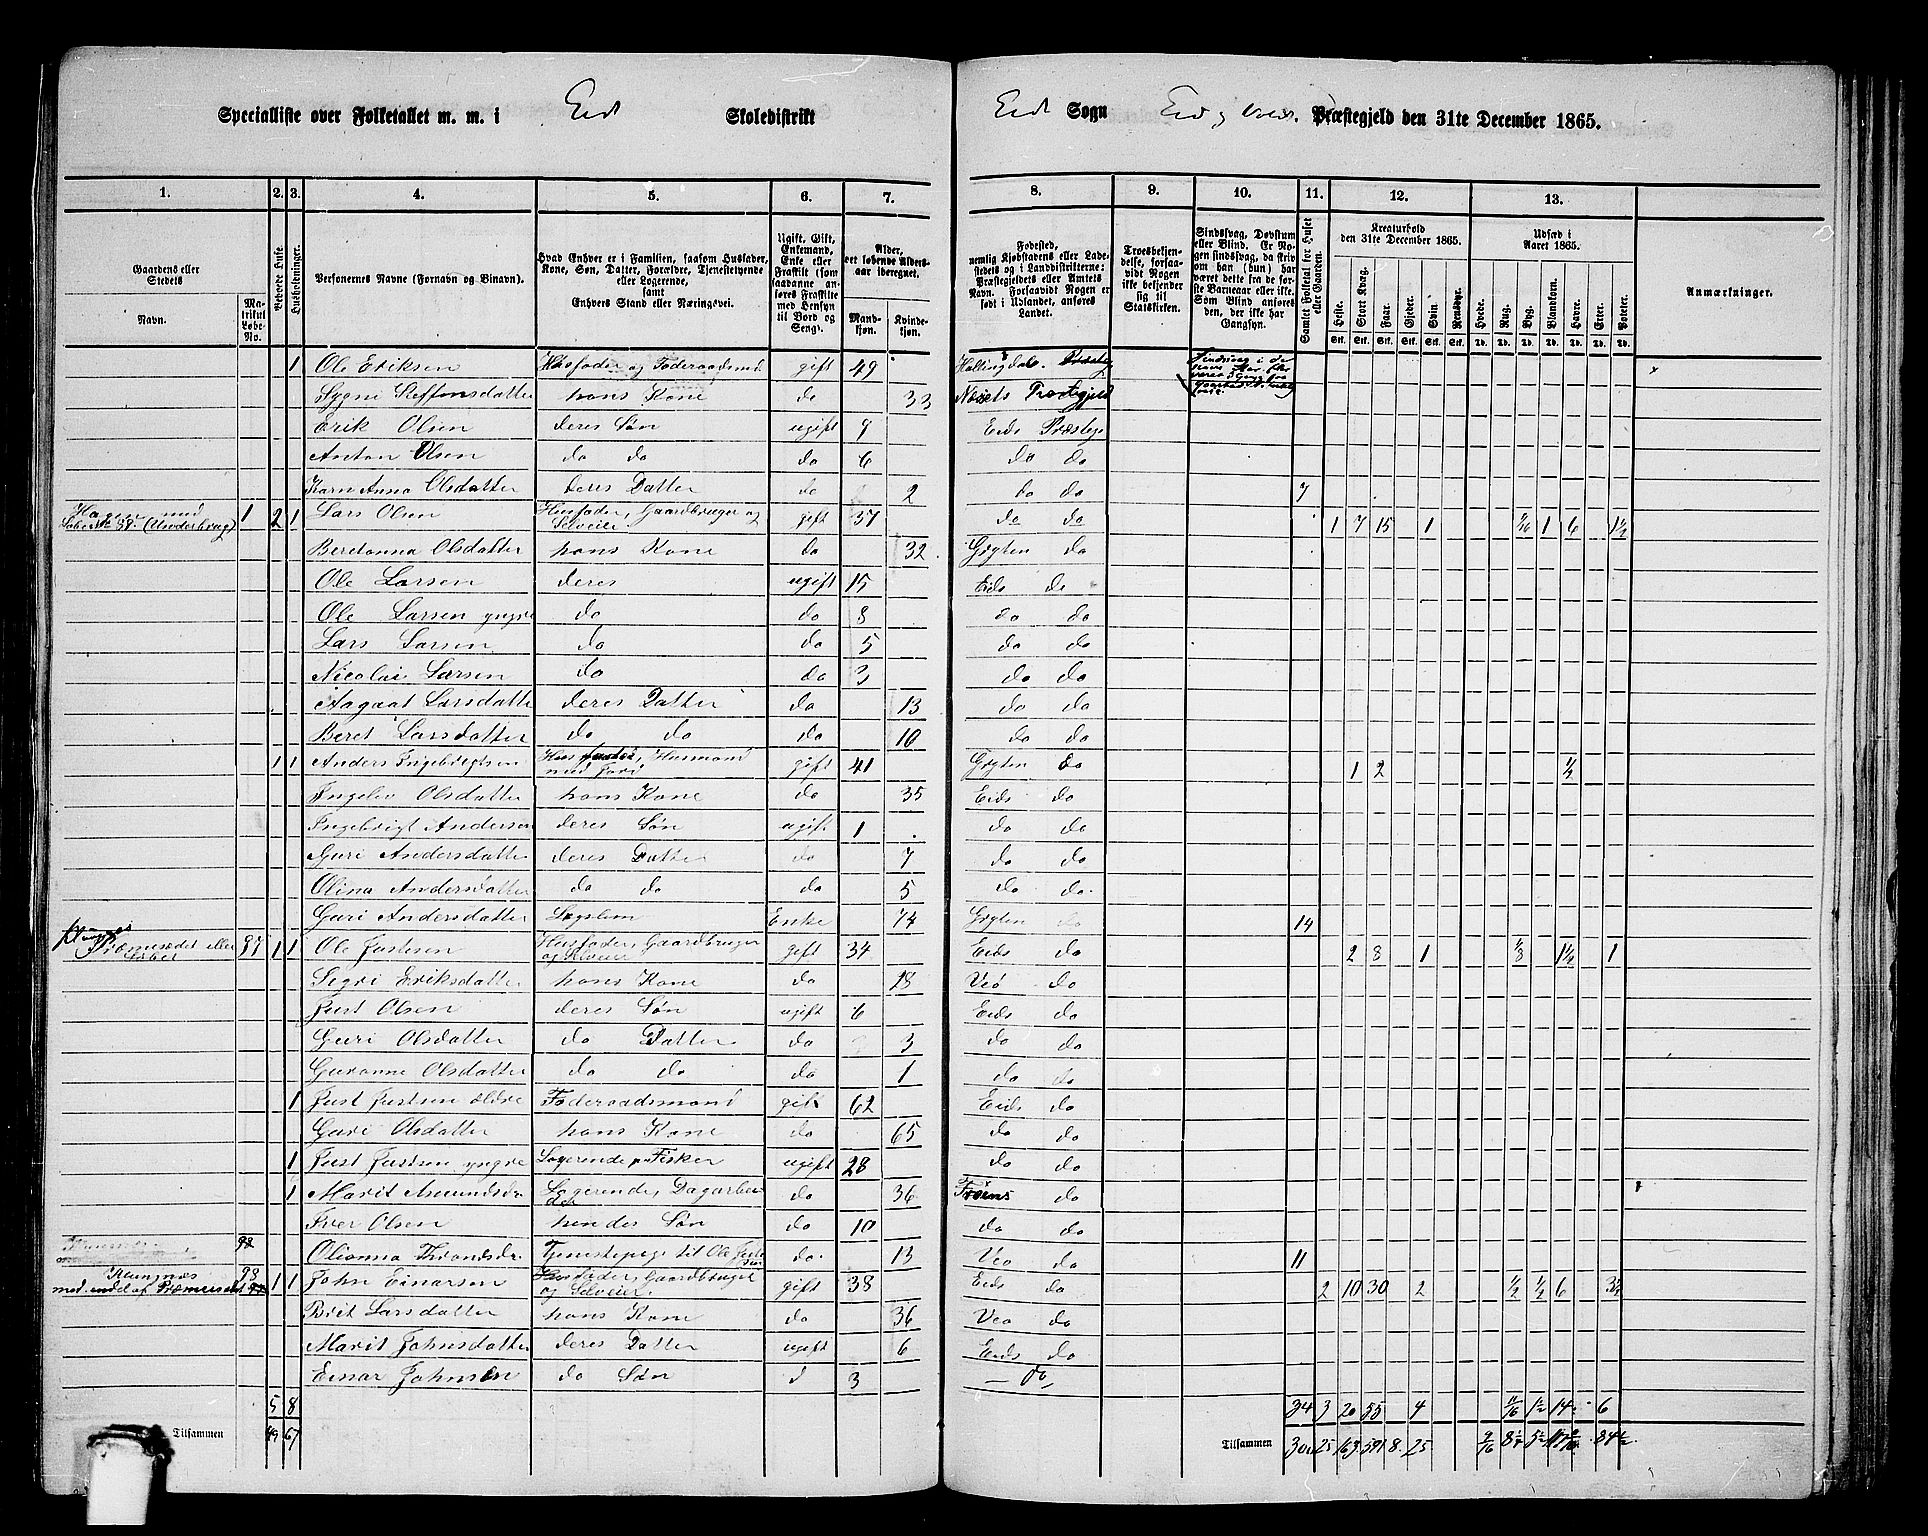 Specialliste over Folketallet m. m. i Eid Skoledistrikt Eid Sogn Eid og Præstegjeld den 31te December 1865.
1. 2. 3. 4. 5. 6. 7. 8. 9. 10. 11. 12. 13.
Gaardens eller Stedets Navn. Matrikul Løbe-No. Beboede Huse. Husholdninger. Personernes Navne (Fornavn og Binavn).
Hvad Enhver er i Familien, saasom Husfader, Kone, Søn, Datter, Forældre, Tjenestetyende eller Logerende, samt Enhvers Stand eller Næringsvei.
Ugift, Gift, Enkemand, Enke eller Fraskilt (som saadanne anføres Fraskilte med Hensyn til Bord og Seng).
Alder, det løbende Aldersaar iberegnet. Mandkjøn. Kvindekjøn.
Fødested, nemlig Kjøbstadens eller Ladestedets og i Landdistrikterne: Præstegjeldets eller Amtets Navn. Forsaavidt Nogen er født i Udlandet, anføres Landet.
Troesbekjendelse, forsaavidt Nogen ikke bekjender sig til Statskirken.
Sindssvag, Døvstum eller Blind. Er Nogen sindssvag, da skriv om han (hun) har været dette fra de første Barneaar eller ikke. Som Blind anføres den, der ikke har Gangsyn.
Samlet Folketal for Huset eller Gaarden.
Kreaturhold den 31te December 1865. Heste. Stort Kvæg. Faar. Gjeder. Svin. Rensdyr.
Udsæd i Aaret 1865. Hvede. Rug. Byg. Blandkorn. Havre. Erter. Poteter.
Anmærkninger.
1 Ole Eriksen Husfader og Føderaadsmand gift 49 Hallingdal
Sygni Steffensdatter hans Kone do 33 Næsets Præstegjeld
Erik Olsen deres Søn ugift 9 Eids Præsteg
Anton Olsen do do do 6 do do
Karn Anna Olsdatter deres Datter do 2 do do 7
Hagen med Løbe No 38 (Underbrug) 1 2 1 Lars Olsen Husfader, Gaardbruger og Selveier gift 37 do do 1 7 15 1 1 6 1½
Beretanna Olsdatter hans Kone do 32 Grytten do
Ole Larsen deres ugift 15 Eids do
Ole Larsen yngre do do 8 do do
Lars Larsen do do 5 do do
Nicolai Larsen do do 3 do do
Aagaat Larsdatter deres Datter do 13 do do
Beret Larsdatter do do do 10 do do
1 1 Anders Ingebrigtsen Husfader, Husmand med Jord gift 41 Grytten do 1 2 ½
Ingelev Olsdatter hans Kone do 35 Eids do
Ingebrigt Andersen deres Søn ugift 1 do do
Guri Andersdatter deres Datter do 7 do do
Olina Andersdatter do do do 5 do do
Guri Andersdatter Lægslem Enke 74 Grytten do 14
97 1 1 Ole Justsen Husfader, Gaardbruger og Selveier gift 34 Eids do 2 8 1 ⅛ 1½ 1
Segri Eriksdatter hans Kone do 28 Veø do
Just Olsen deres Søn ugift 6 Eids do
Guri Olsdatter do Datter do 3 do do
Guranne Olsdatter do do do 1 do do
1 Just Justsen ældre Føderaadsmand gift 62 Eids do
Guri Olsdatter hans Kone do 65 do do
1 Just Justsen yngre Logerende, Fisker ugift 28 do do
1 Marit Amundsda Logerende, Dagarbeider do 36 do
Iver Olsen hendes Søn do 10 do do
98 Olianna Throndsda Tjenestepige til Ole Justsen do 13 Veø do 11
Klungnæs 98 1 1 John Einarsen Husfader, Gaardbruger og Selveier gift 38 Eids do 2 10 30 2 ½ ½ 6 3½
Brit Larsdatter hans Kone do 36 Veø do
Marit Johnsdatter deres Datter ugift 6 Eids do
Einar Johnsen do Søn d 3 do
5 8 34 3 20 55 4 14 6
Tilsammen 49 67 Tilsammen 25 8 25